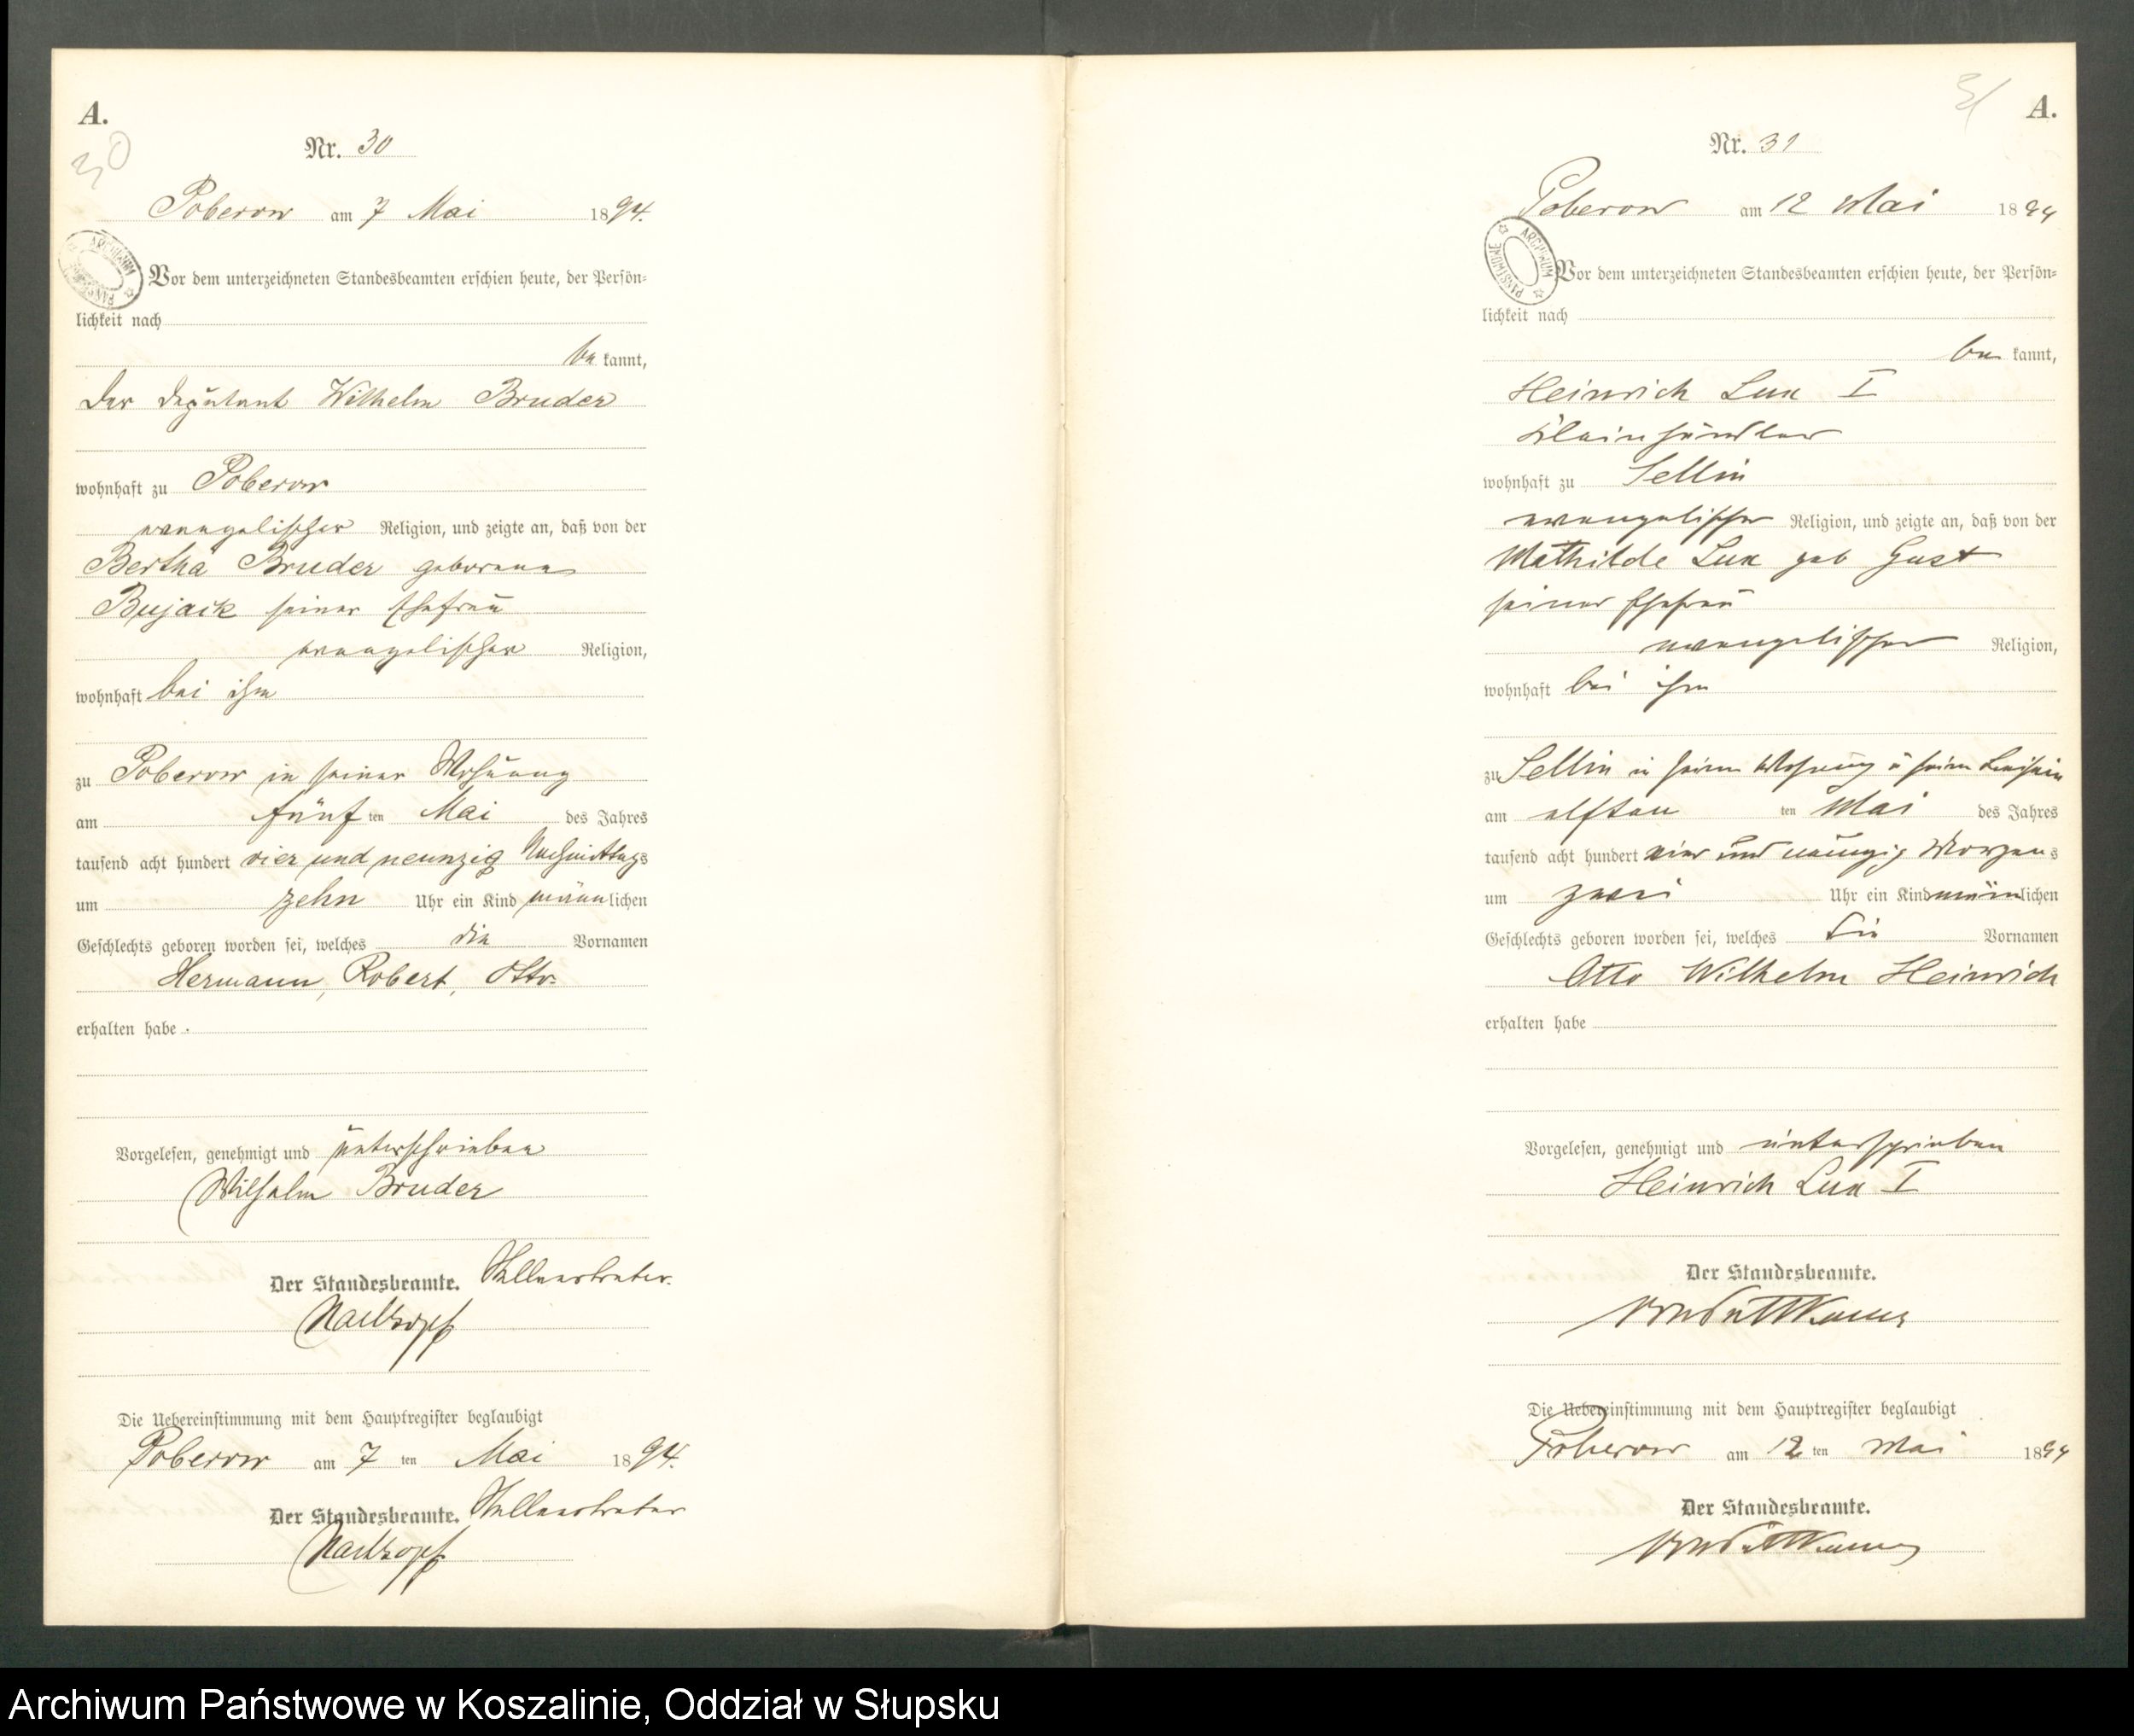 A.
30
Nr. 30
Poberow am 7 Mai 1894.
ARCHIWUM PAŃSTWOWE
Vor dem unterzeichneten Standesbeamten erschien heute, der Persön-
lichkeit nach
be kannt,
der Deputant Wilhelm Bruder
wohnhaft zu Poberow
evangelischer Religion, und zeigte an, daß von der
Bertha Bruder geborene
Bujack seiner Ehefrau
evangelischer Religion,
wohnhaft bei ihm
zu Poberow in seiner Wohnung
am fünf ten Mai des Jahres
tausend acht hundert vier und neunzig Nachmittags
um zehn Uhr ein Kind männlichen
Geschlechts geboren worden sei, welches die Vornamen
Hermann, Robert, Otto
erhalten habe.
Vorgelesen, genehmigt und unterschrieben
Wilhelm Bruder
Der Standesbeamte. Stellvertreter.
Die Uebereinstimmung mit dem Hauptregister beglaubigt
Poberow am 7 ten Mai 1894.
Der Standesbeamte. Stellvertreter
31
A.
Nr. 31
Poberow am 12 Mai 1894
ARCHIWUM PAŃSTWOWE
Vor dem unterzeichneten Standesbeamten erschien heute, der Persön-
lichkeit nach
be kannt,
Heinrich Lux I
Kleinhändler
wohnhaft zu Sellin
evangelischer Religion, und zeigte an, daß von der
Mathilde Lux geb Gust
seiner Ehefrau
evangelischer Religion,
wohnhaft bei ihm
zu Sellin in seiner Wohnung u seinem Beisein
am elften ten Mai des Jahres
tausend acht hundert vier und neunzig Morgens
um zwei Uhr ein Kind männlichen
Geschlechts geboren worden sei, welches die Vornamen
Otto Wilhelm Heinrich
erhalten habe
Vorgelesen, genehmigt und unterschrieben
Heinrich Lux I
Der Standesbeamte.
von Puttkamer
Die Uebereinstimmung mit dem Hauptregister beglaubigt
Poberow am 12 ten Mai 1894
Der Standesbeamte.
von Puttkamer
Archiwum Państwowe w Koszalinie, Oddział w Słupsku